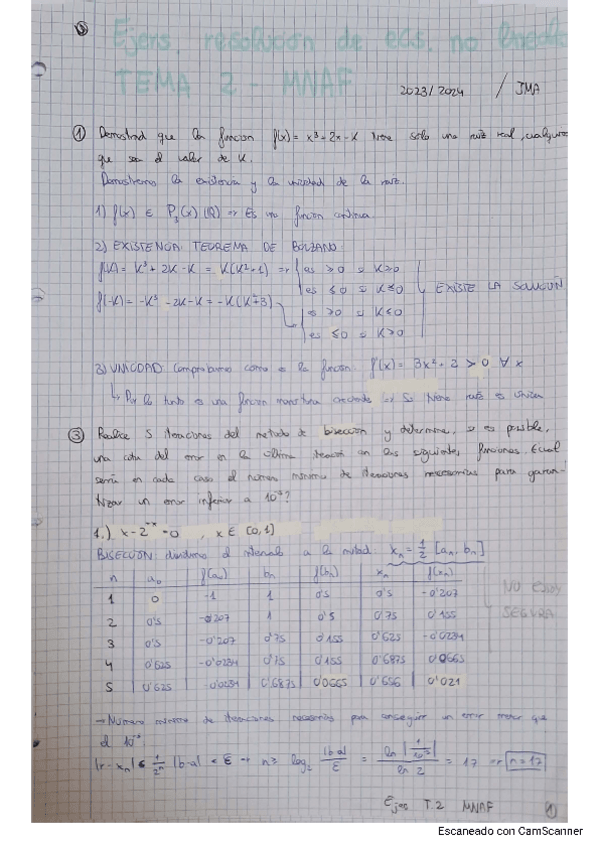 Ejers. resolución de ecs. no lineales
TEMA 2 - MNAF
2023/2024 / JMA
① Demostrad que la funcion f(x) = x³+2x-K tiene solo una raiz real, cualquiera
que sea el valor de K.
Demostremos la existencia y la unicidad de la raiz.
1) f(x) ∈ P₃(x) (ℝ) ⇒ Es una función continua
2) EXISTENCIA: TEOREMA DE BOLZANO
f(K) = K³ + 2K - K = K(K²+1) ⇒ es ≥0 si K≥0
es ≤0 si K≤0
EXISTE LA SOLUCIÓN
f(-K) = -K³ -2K-K = -K(K²+3)
es ≥0 si K≤0
es ≤0 si K>0
3) UNICIDAD Comprobamos como es la función: f'(x) = 3x² + 2 > 0 ∀ x
↳ Por lo tanto es una función monótona creciente ⇒ Si tiene raiz es única
③ Realice 5 iteraciones del metodo de bisección y determine, si es posible,
una cota del error en la última iteración en las siguientes funciones. ¿cual
seria en cada caso el numero minimo de iteraciones necesarias para garan-
tizar un error inferior a 10⁻⁵?
1.) x-2⁻ˣ=0 , x ∈ [0,1]
BISECCIÓN: dividimos el intervalo a la mitad: xₙ = 1/2 [aₙ, bₙ]
n aₙ f(aₙ) bₙ f(bₙ) xₙ f(xₙ)
1 0 -1 1 0'5 0'5 -0'207
NO ESTOY
2 0'5 -0'207 1 0'5 0'75 0'155
SEGURA
3 0'5 -0'207 0'75 0'155 0'625 -0'0234
4 0'625 -0'0234 0'75 0'155 0'6875 0'0665
5 0'625 -0'0234 0'6875 0'0665 0'656 0'021
→ Número minimo de iteraciones necesarias para conseguir un error menor que
el 10⁻⁵:
|r - xₙ| ≤ 1/2ⁿ |b-a| < Ɛ → n ≥ log₂ |b-a|/Ɛ = ln |1/10⁻⁵| / ln 2 = 17 ⇒ n=17
Ejers T.2 MNAF ①
Escaneado con CamScanner